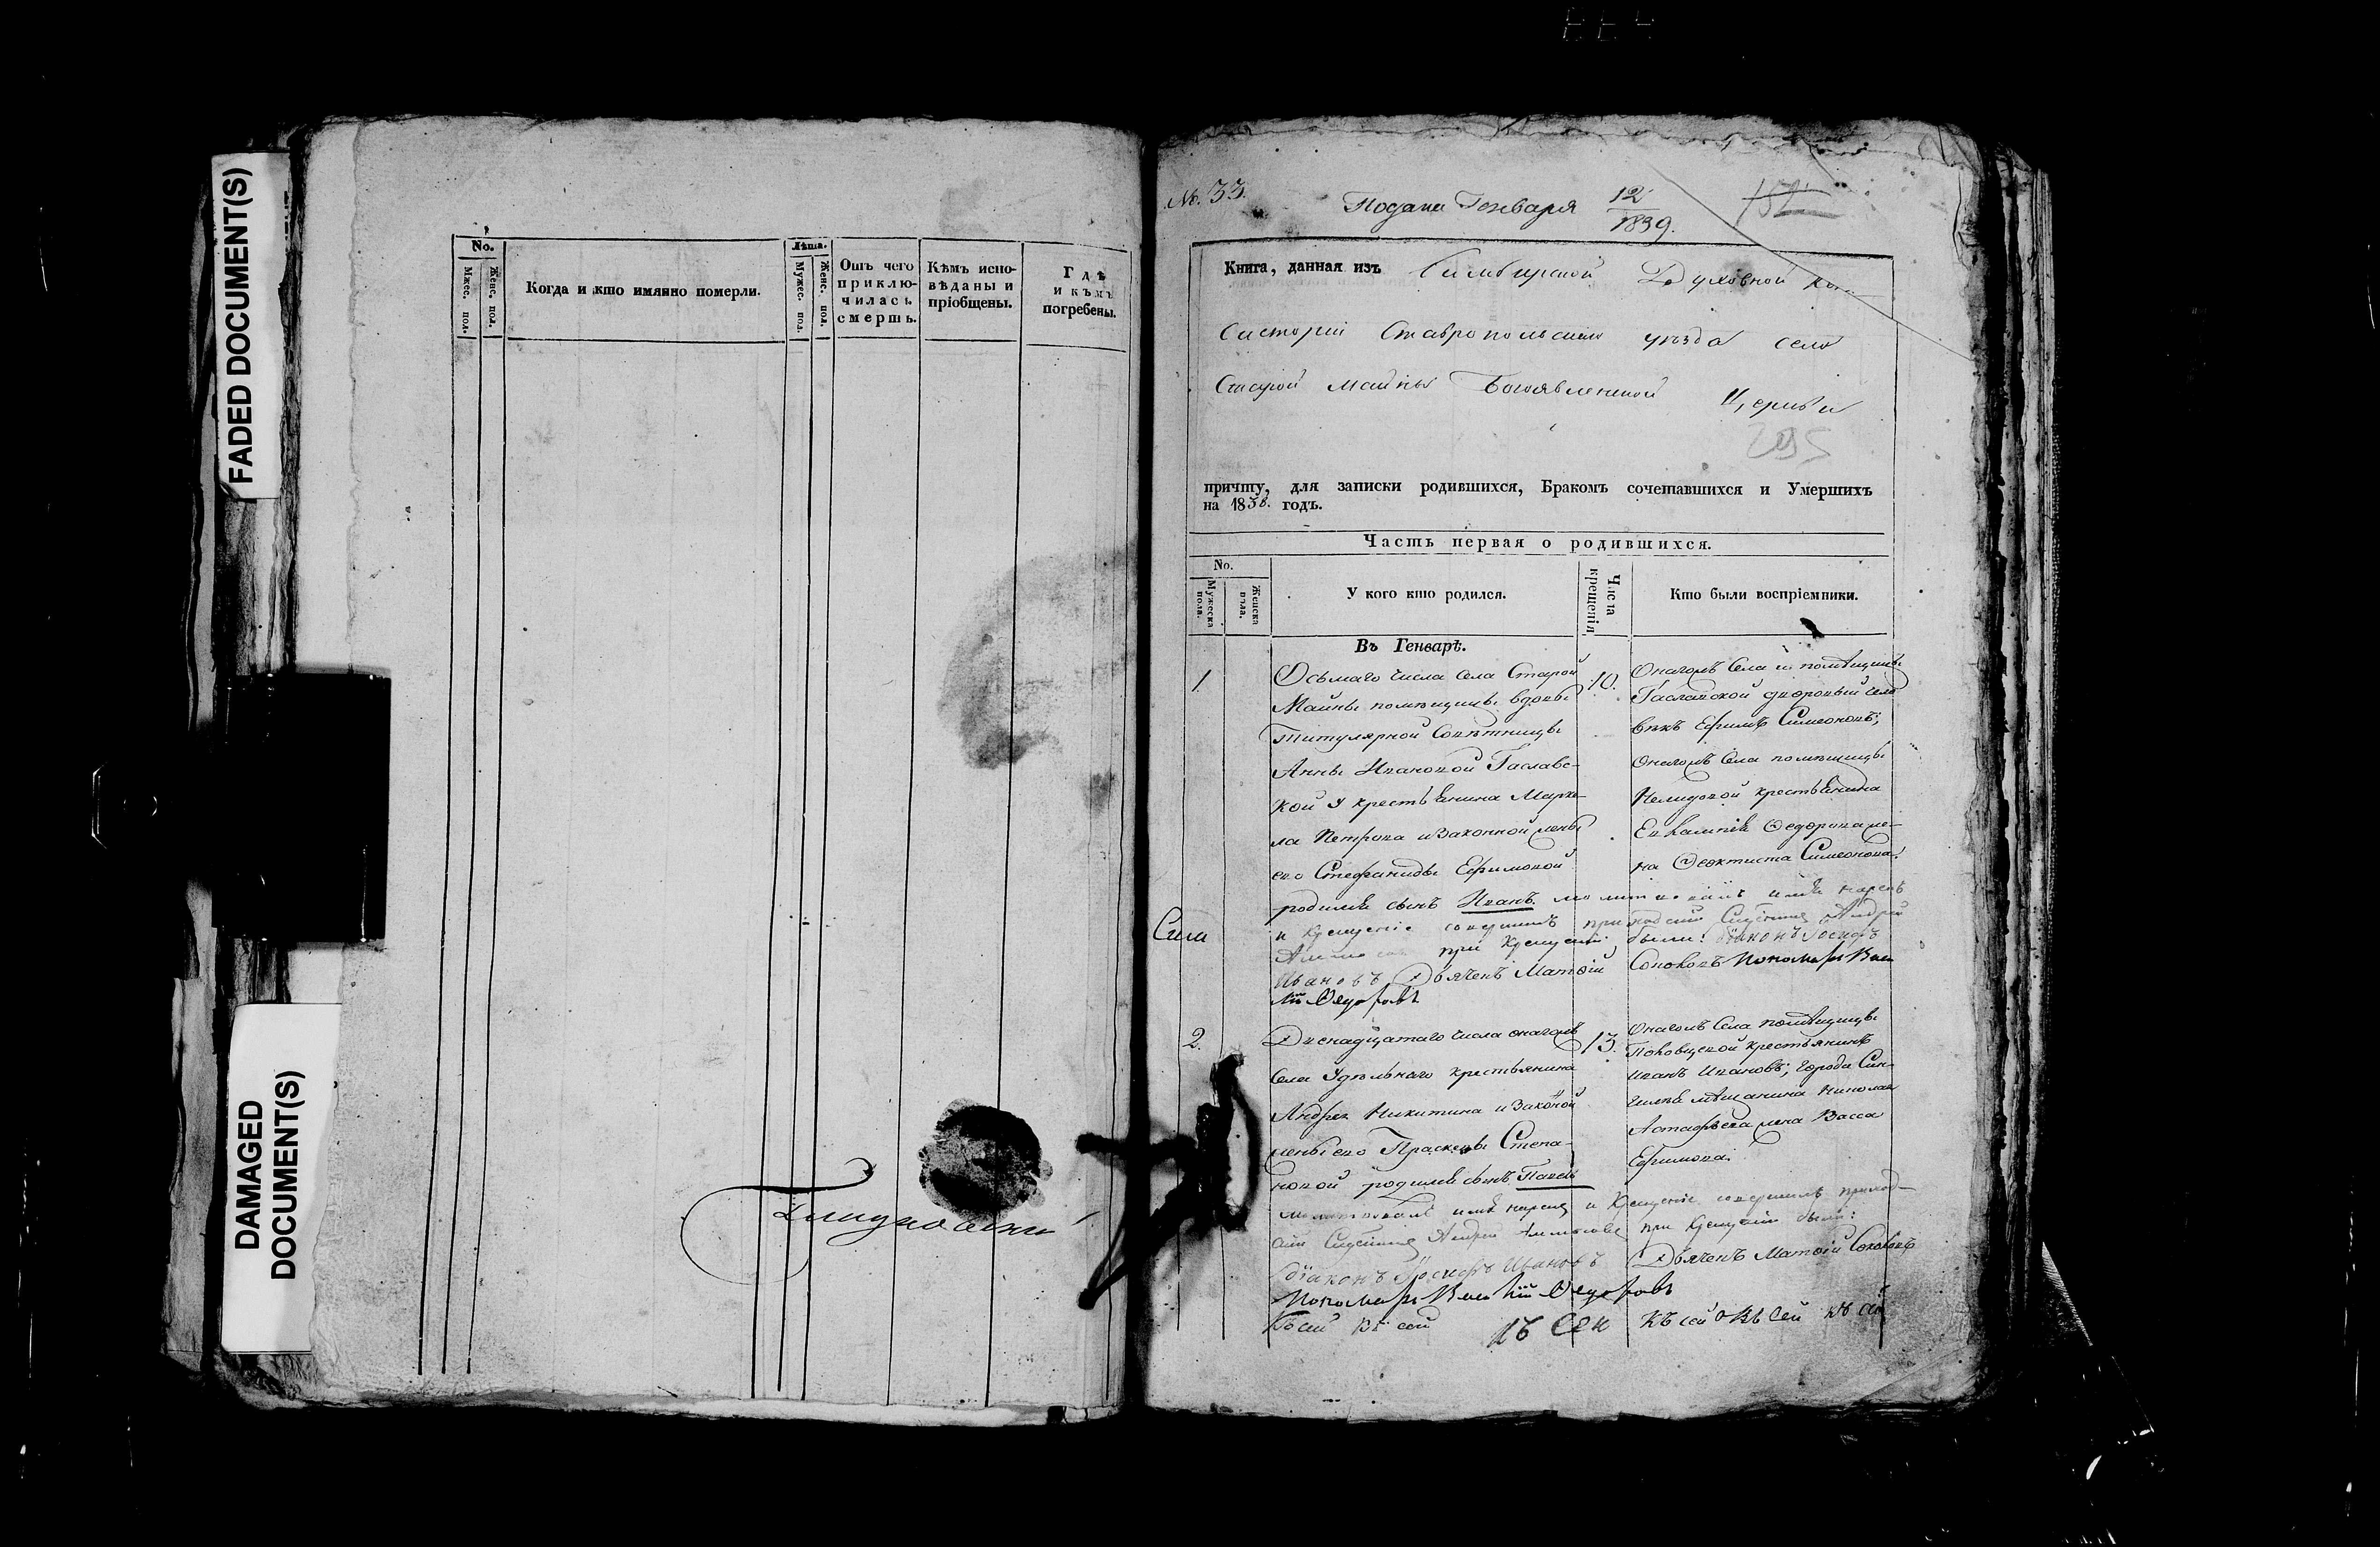 FADED DOCUMENT(S)
DAMAGED
DOCUMENT(S)
No.
Мжес. пол.
Женс. пол.
Когда и кто имянно померли.
Лѣта.
Мужес. пол.
Женс. пол.
Отъ чего
приклю-
чилась
смерть.
Кѣмъ испо-
вѣданы и
пріобщены.
Гдѣ
и кѣмъ
погребены.
№. 33.
Подана Генваря 12
1839.
Книга, данная изъ Симбирской Духовной Кон
систоріи Ставропольскаго уѣзда села
Старой Майны Богоявленской Церкви
295
причту, для записки родившихся, Бракомъ сочетавшихся и Умершихъ
на 1838. годъ.
Часть первая о родившихся.
No.
Мужеска пола.
Женска пола.
У кого кто родился.
Числа крещенія
Кто были воспріемники.
Въ Генварѣ.
1.
Осьмаго числа села Старой
Майны помѣщицы вдовы
Титулярной Совѣтницы
Анны Ивановой Гаславс-
кой у крестьянина Марке-
ла Петрова и законной жены
его Стефаниды Ефимовой
родился сынъ Иванъ. молитвовалъ имя нарекъ
и крещеніе совершилъ приходскій Священникъ Андрей
при крещеніи были: діаконъ Іосифъ
Ивановъ Дьячекъ Матѳій Соковъ Пономарь Васи
лій Ѳедоровъ
10.
Онагожъ Села помѣщицы
Гаславской дворовый чело
вѣкъ Ефимъ Симеоновъ;
Онагожъ Села помѣщицы
Нелидовой крестьянина
Ѳедорова же-
на Ѳеоктиста Симеонова.
2.
Двенадцатаго числа онагожъ
Села Удѣльнаго крестьянина
Андрея Никитина и законной
жены его Прасковьи Степа-
новой родился сынъ Павелъ
молитвовалъ имя нарекъ и крещеніе совершилъ приход-
скій Священникъ Андрей при крещеніи были:
діаконъ Іосифъ Ивановъ Дьячекъ Матѳій Соковъ
Пономарь Василій Ѳедоровъ
13.
Онагожъ Села помѣщицы
крестьянинъ
Иванъ Ивановъ; города Син-
гилея мѣщанина Николая
Астафьева жена Васса
Ефимова.
Къ сей Къ сей Къ сей Къ сей Къ сей Къ сей